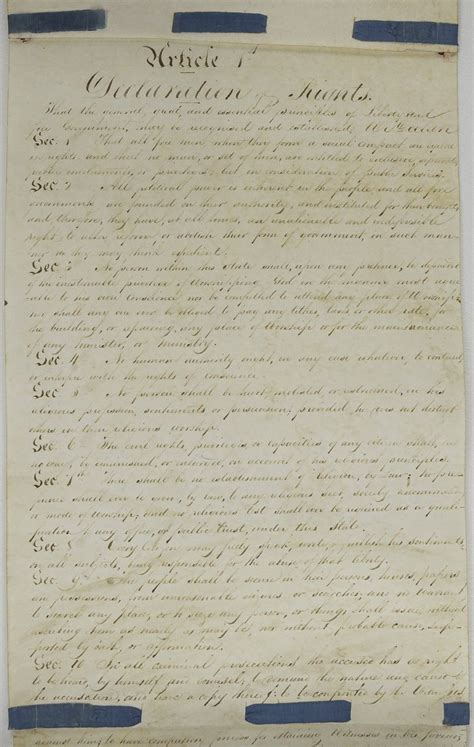 Article 1st
Declaration of Rights.
That the general, great, and essential principles of Liberty and
free Government, may be recognized and established, We declare
Sec. 1 That all free men, when they form a social compact, are equal
in rights and that no man, or set of men, are entitled to exclusive, separate
public emoluments, or privileges, but in consideration of public services.
Sec. 2 All political power is inherent in the people, and all free
governments are founded on their authority, and instituted for their benefit;
and therefore, they have, at all times, an unalienable and indefeasible
right, to alter, reform or abolish their form of government, in such man-
ner as they may think expedient.
Sec. 3 No person within this State shall, upon any pretence, be deprived
of the inestimable privilege of worshipping God in the manner most agree-
able to his own conscience nor be compelled to attend any place of worship;
nor shall any one be obliged to pay any tithes, taxes or other rate, for
the building, or repairing, any place of worship or for the maintenance
of any minister, or ministry.
Sec. 4 No human authority ought, in any case whatever, to control
or interfere with the rights of conscience.
Sec. 5 No person shall be hurt, molested or restrained, in his
religious profession, sentiments or persuasion, provided he does not disturb
others in their religious worship.
Sec. 6 The civil rights, privileges, or capacities of any citizen shall, in
no way, be on account of his religious principles.
Sec. 7th There shall be no establishment of Religion, by law; no pref-
erence shall ever be given, by law, to any religious sect, society, denomination
or mode of worship; and no religious test shall ever be required as a quali-
fication to any office, or public trust, under this State.
Sec. 8 Every citizen may freely speak, write, & publish his sentiments
on all subjects, being responsible for the abuse of that liberty.
Sec. 9 The people shall be secure in their persons, houses, papers
and possessions, from unreasonable seizures or searches, and no warrant
to search any place, or to seize any person, or things shall issue, without
describing them as nearly as may be, nor without, probable cause, sup-
ported by oath, or affirmation.
Sec. 10 In all criminal prosecutions the accused has a right
to be heard, by himself and counsel; to demand the nature and cause of
the accusation, and have a copy thereof; to be confronted by the Witnesses
against him; to have compulsory process for obtaining Witnesses in his favour;